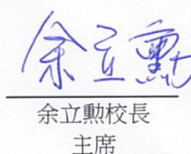 余立勳
余立勳校長
主席